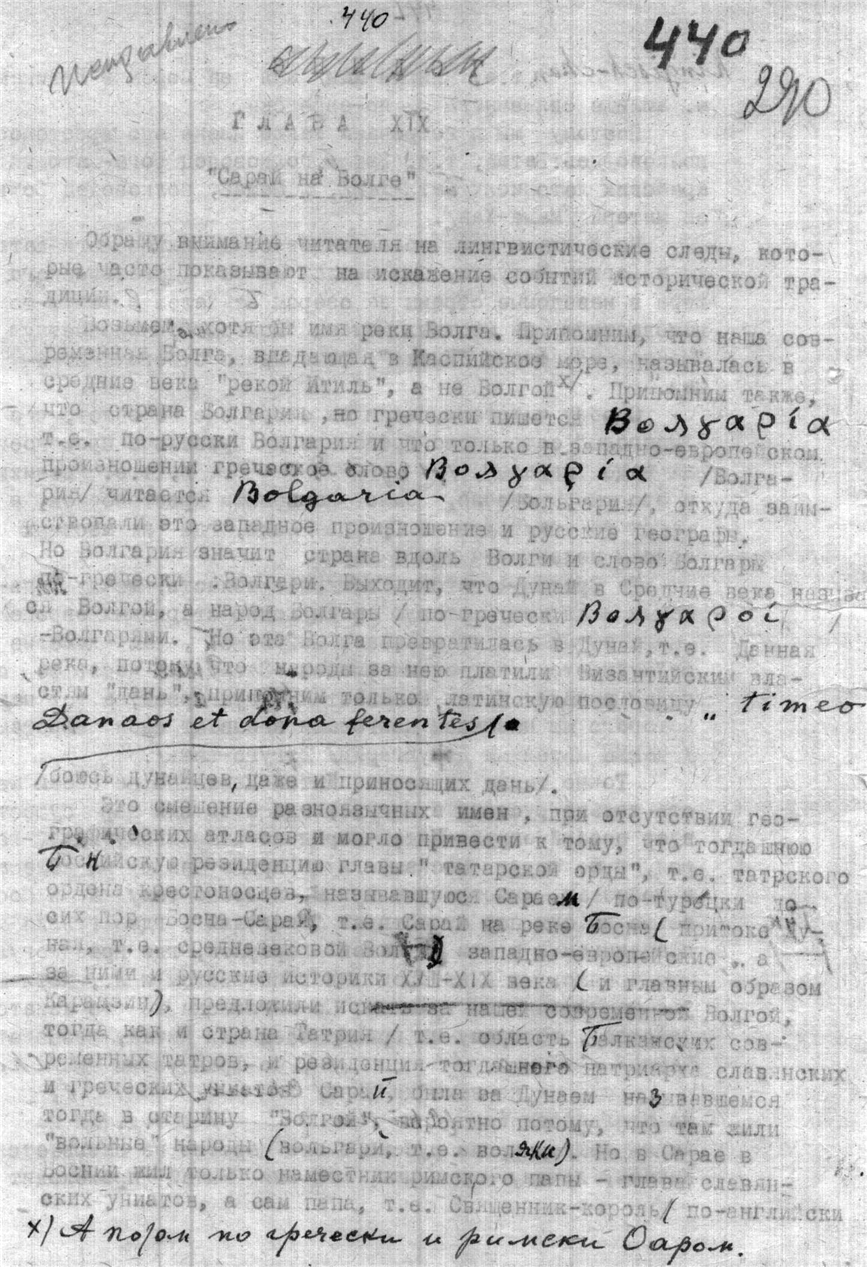 440
440
290
ГЛАВА XIX
"Сарай на Волге"
Обращу внимание читателя на лингвистические следы, кото-
рые часто показывают на искажение событий исторической тра-
диции.
Возьмем хотя бы имя реки Волга. Припомним, что наша сов-
ременная Волга, впадающая в Каспийское море, называлась в
средние века "рекой Итиль", а не Волгой x/. Припомним также,
что страна Болгария, по гречески пишется Βολγαρία
т.е. по-русски Волгария и что только в западно-европейском
произношении греческое слово Βολγαρία /Волга-
рия/ читается Bolgaria /Больгария/, откуда заим-
ствовали это западное произношение и русские географы.
Но Волгария значит страна вдоль Волги и слово Болгары
по-гречески : Волгари. Выходит, что Дунай в Средние века называл
ся Волгой, а народ Болгары / по-гречески Βολγαροί /
-Волгарями. Но эта Волга превратилась в Дунай, т.е. Данная
река, потому что народы за нею платили Византийским вла-
стям "дань", припомним только латинскую пословицу „ timeo
Danaos et dona ferentes/.
/боюсь дунайцев, даже и приносящих дань/.
Это смешение разноязычных имен, при отсутствии гео-
графических атласов и могло привести к тому, что тогдашнюю
Боснийскую резиденцию главы "татарской орды", т.е. татрского
ордена крестоносцев, называвшуюся Сараем / по-турецки до
сих пор Босна-Сарай, т.е. Сарай на реке Босна ( притоке Ду-
ная, т.е. средневековой западно-европейские , а
за ними и русские историки XVIII-XIX века ( и главным образом
Карамзин), предложили искать за нашей современной Волгой,
тогда как и страна Татрия / т.е. область Балканских сов-
ременных татров, и резиденция тогдашнего патриарха славянских
и греческих униатов Сарай, была за Дунаем называвшемся
тогда в старину "Волгой", вероятно потому, что там жили
"вольные" народы (вольгари, т.е. воляки). Но в Сарае в
Боснии жил только наместник римского папы - глава славян-
ских униатов, а сам папа, т.е. Священник-король ( по-английски
x) А потом по гречески и римски Оаром.